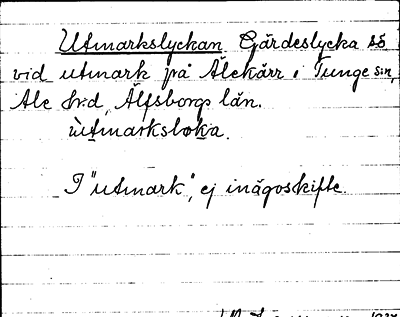 Utmarkslyckan Gärdeslycka så
vid utmark på Älekärr i Tunge sn,
Ale hrd, Älfsborgs län.
ùtmarksloka.
I "utmark", ej inägoskifte.